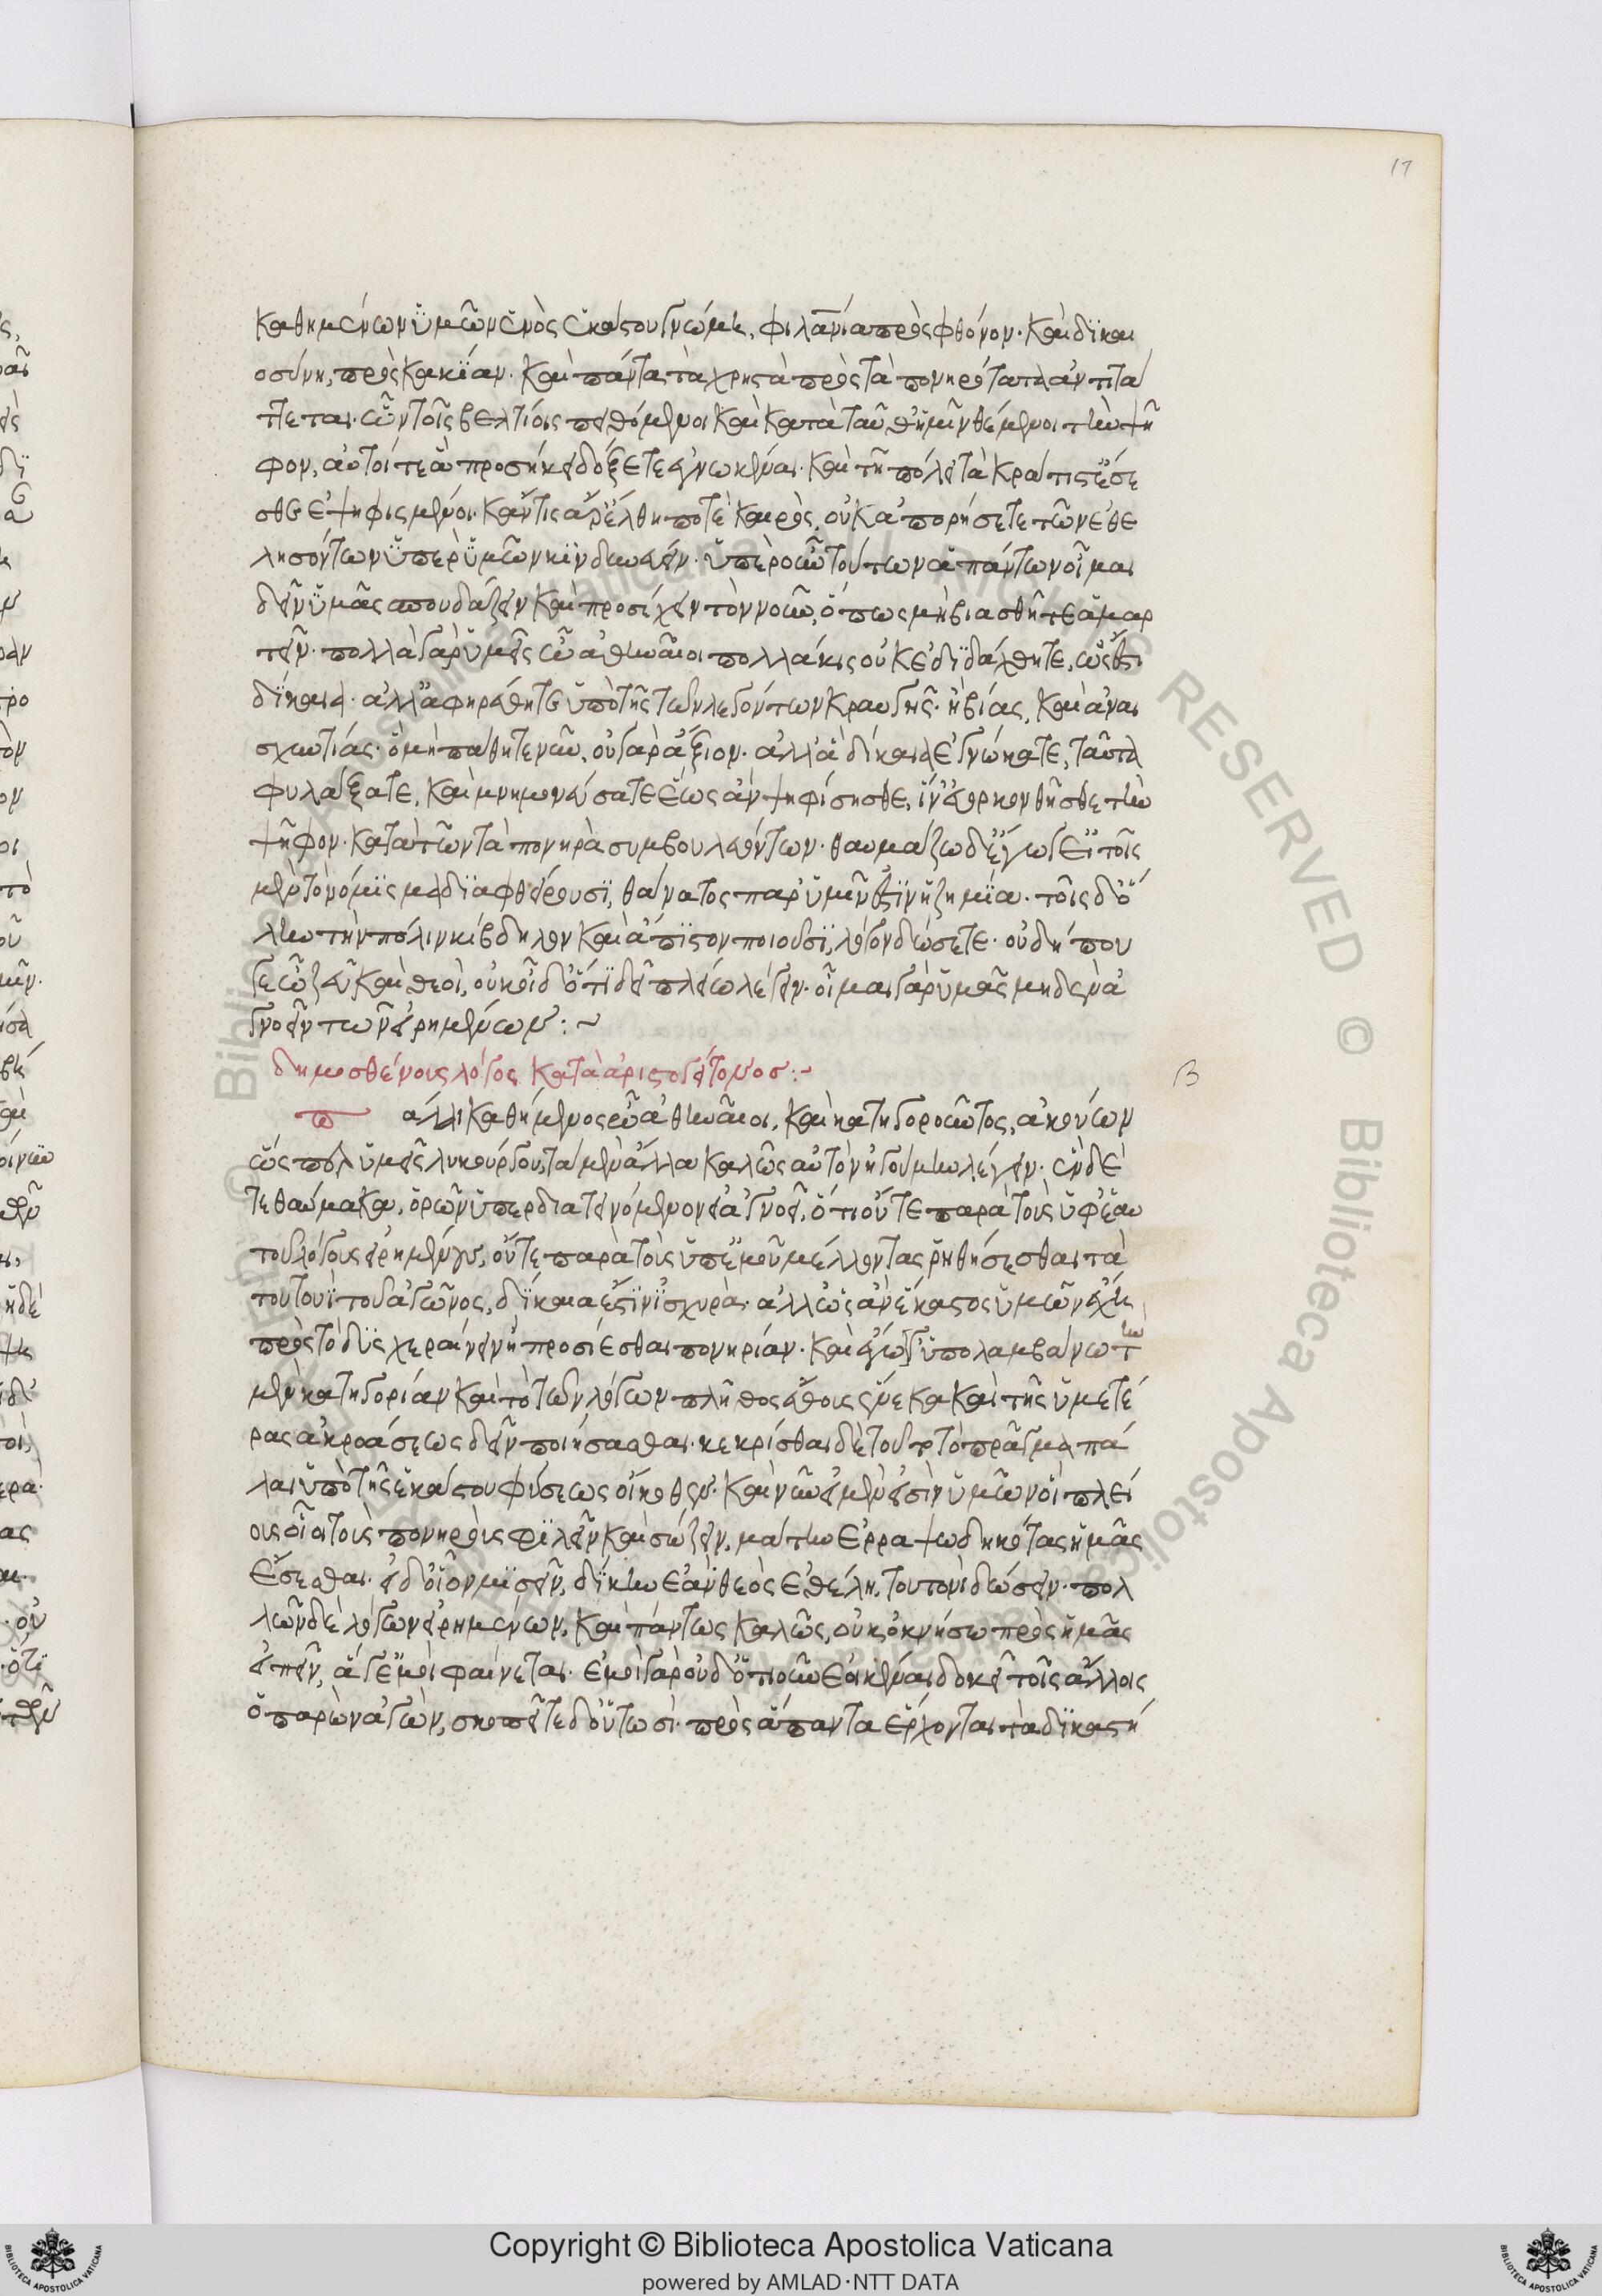 17
καθημένων ὑμῶν ἑνὸς ἑκάστου γνώμη, φιλανία πρὸς φθόνον· καὶ δικαι
οσύνη, πρὸς κακίαν· καὶ πάντα τὰ χρηστὰ πρὸς τὰ πονηρότατα ἀντιτά
τεται. ὧν τοῖς βελτίοσι πειθόμενοι καὶ κατὰ ταῦθ' ἡμῖν θέμενοι τὴν ψῆ
φον, αὐτοί τε ἃ προσῆκε δόξετε ἐγνωκέναι· καὶ τῇ πόλει τὰ κράτιστ' ἔσε
σθε ἐψηφισμένοι· κἄν τις ἄρ' ἔλθη ποτὲ καιρὸς, οὐκ ἀπορήσετε τῶν ἐθε
λησόντων ὑπὲρ ὑμῶν κινδυνεύειν· ὑπὲρ οὖν τούτων ἁπάντων οἶμαι
δεῖν ὑμᾶς σπουδάζειν καὶ προσέχειν τὸν νοῦν, ὅπως μὴ βιασθῆτε ἁμαρ
τεῖν· πολλὰ γὰρ ὑμεῖς ὦ ἀθηναῖοι πολλάκις οὐκ ἐδιδάχθητε, ὡς ἔστι
δίκαια· ἀλλ' ἀφηρέθητε ὑπὸ τῆς τῶν λεγόντων κραυγῆς· ἢ βίας, καὶ ἀναι
σχυντίας· ὃ μὴ πάθητε νῦν, οὐ γὰρ ἄξιον· ἀλλ' ἃ δίκαια ἐγνώκατε, ταῦτα
φυλάξατε, καὶ μνημονεύσατε ἕως ἂν ψηφίσησθε, ἵν' εὔορκον θῆσθε τὴν
ψῆφον· κατὰ τῶν τὰ πονηρὰ συμβουλευόντων· θαυμάζω δ' ἔγωγε εἰ τοῖς
μὲν τὸ νόμισμα διαφθείρουσι, θάνατος παρ' ὑμῖν ἐστὶν ἡ ζημία· τοῖς δ' ὅ
λην τὴν πόλιν κίβδηλον καὶ ἄπιστον ποιοῦσι, λόγον δώσετε· οὐ δή που
γε ὦ ζεῦ καὶ θεοὶ, οὐκ οἶδ' ὅ τι δεῖ πλείω λέγειν· οἶμαι γὰρ ὑμᾶς μηδὲν ἀ
γνοεῖν τῶν εἰρημένων :~
δημοσθένους λόγος κατὰ ἀριστογείτονος :~
β
π άλαι καθήμενος ὦ ἀθηναῖοι, καὶ κατηγοροῦντος, ἀκούων
ὥσπερ ὑμεῖς λυκούργου, τὰ μὲν ἄλλα καλῶς αὐτὸν ἡγούμην λέγειν· ἓν δὲ
τεθαύμακα, ὁρῶν ὑπερδιατεινόμενον εἰ ἀγνοεῖ, ὅτι οὔτε παρὰ τοὺς ὑφ' ἑαυ
τοῦ λόγους εἰρημένους, οὔτε παρὰ τοὺς ὑπ' ἐμοῦ μέλλοντας ῥηθήσεσθαι τὰ
τουτουῒ τοῦ ἀγῶνος, δίκαια ἐστὶν ἰσχυρά· ἀλλ' ὡς ἂν ἕκαστος ὑμῶν ἔχη
πρὸς τὸ δυσχεραίνειν ἢ προσίεσθαι πονηρίαν· καὶ ἔγωγ' ὑπολαμβάνω τὴν
μὲν κατηγορίαν καὶ τὸ τῶν λόγων πλῆθος ἔθους ἕνεκα καὶ τῆς ὑμετέ
ρας ἀκροάσεως δεῖν ποιήσασθαι· κεκρίσθαι δὲ τουτὶ τὸ πρᾶγμα πά
λαι ὑπὸ τῆς ἑκάστου φύσεως οἴκοθεν· καὶ νῦν εἰ μὲν εἰσὶν ὑμῶν οἱ πλεί
ους οἷοι τοὺς πονηροὺς φιλεῖν καὶ σώζειν, μάτην ἐρραψωδηκότας ἡμᾶς
ἔσεσθαι· εἰ δ' οἷον μισεῖν, δίκην ἐὰν θεὸς ἐθέλη, τουτονὶ δώσειν· πολ
λῶν δὲ λόγων εἰρημένων, καὶ πάντως καλῶς, οὐκ ὀκνήσω πρὸς ἡμᾶς
εἰπεῖν, ἅ γε ἐμοὶ φαίνεται· ἐμοὶ γὰρ οὐδ' ὁτιοῦν ἐοικέναι δοκεῖ τοῖς ἄλλοις
ὁ παρὼν ἀγὼν, σκοπεῖτε δ' οὑτωσί· πρὸς ἅπαντα ἔρχονται τὰ δικαστή
Copyright © Biblioteca Apostolica Vaticana
powered by AMLAD·NTT DATA